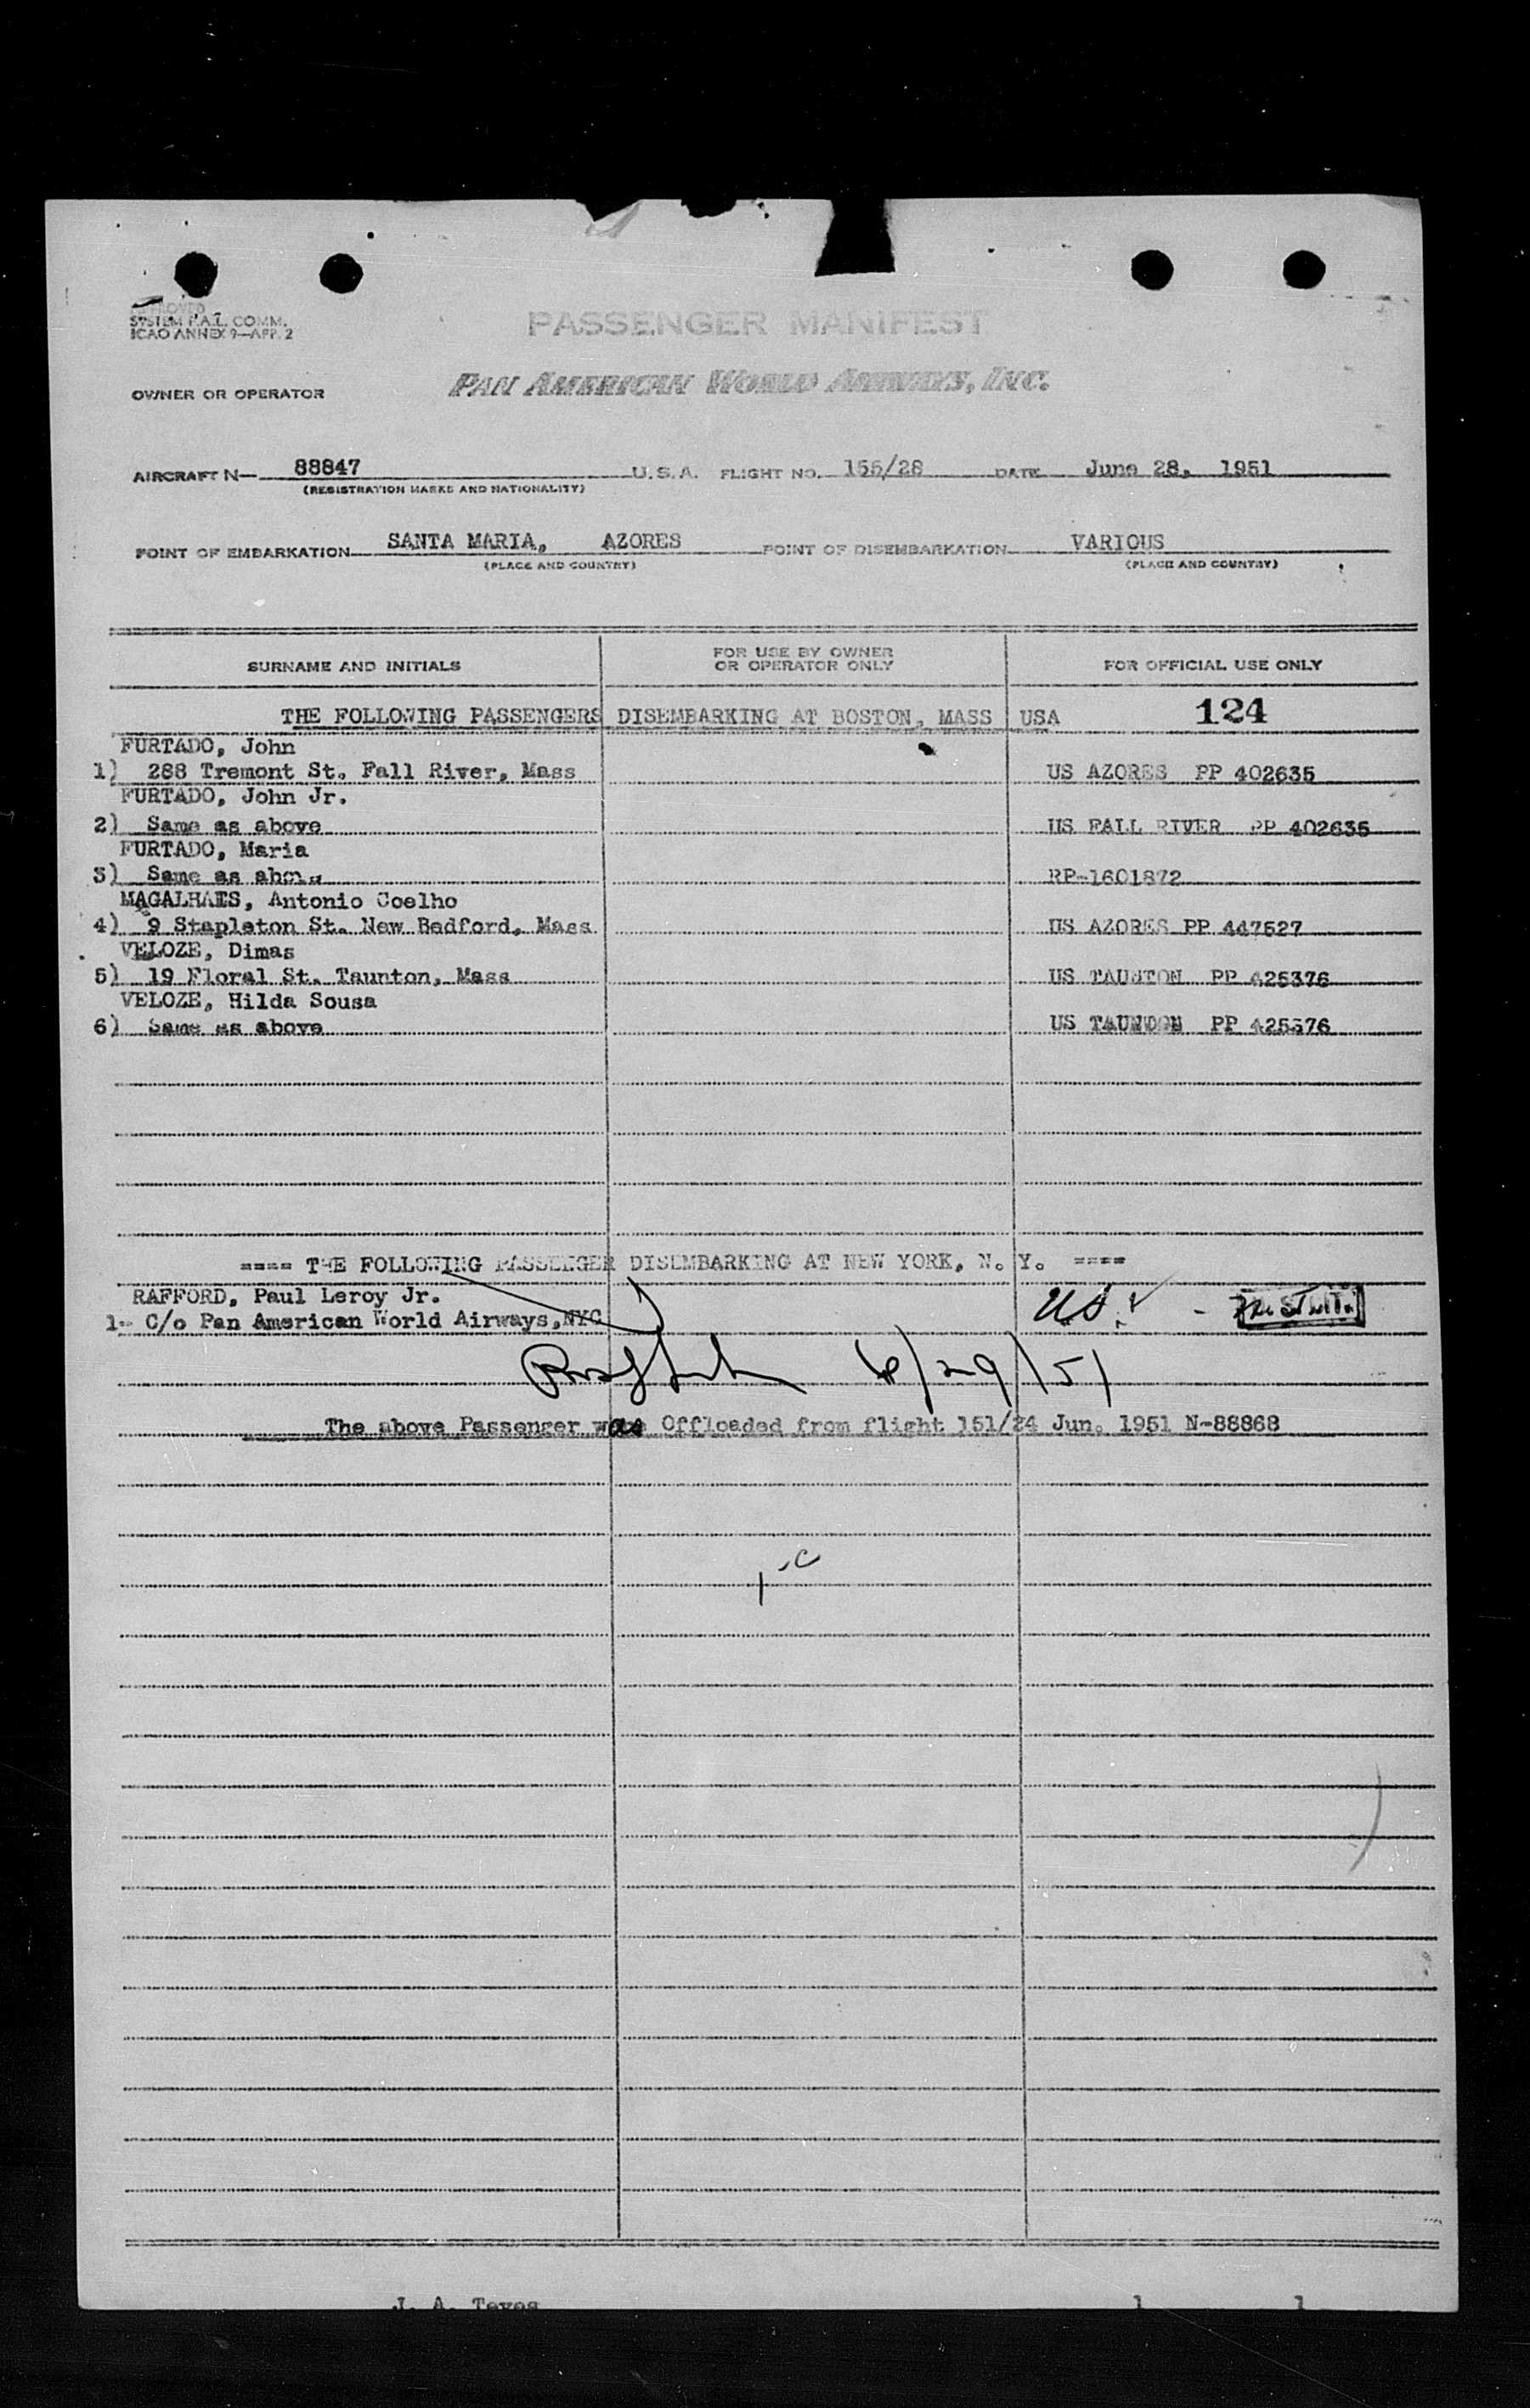 APPROVED
SYSTEM F.A.L. COMM.
ICAO ANNEX 9—APP. 2
PASSENGER MANIFEST
OWNER OR OPERATOR PAN AMERICAN WORLD AIRWAYS, INC.
AIRCRAFT N— 88847 U.S.A. FLIGHT NO. 155/28 DATE June 28, 1951
(REGISTRATION MARKS AND NATIONALITY)
POINT OF EMBARKATION SANTA MARIA, AZORES POINT OF DISEMBARKATION VARIOUS
(PLACE AND COUNTRY) (PLACE AND COUNTRY)
SURNAME AND INITIALS FOR USE BY OWNER OR OPERATOR ONLY FOR OFFICIAL USE ONLY
THE FOLLOWING PASSENGERS DISEMBARKING AT BOSTON, MASS USA 124
FURTADO, John
1) 288 Tremont St. Fall River, Mass US AZORES PP 402635
FURTADO, John Jr.
2) Same as above US FALL RIVER PP 402635
FURTADO, Maria
3) Same as above RP-1601872
MAGALHAES, Antonio Coelho
4) 9 Stapleton St. New Bedford, Mass US AZORES PP 447527
VELOZE, Dimas
5) 19 Floral St. Taunton, Mass US TAUNTON PP 425376
VELOZE, Hilda Sousa
6) Same as above US TAUNDON PP 425376
==== THE FOLLOWING PASSENGER DISEMBARKING AT NEW YORK, N. Y. ====
RAFFORD, Paul Leroy Jr.
1- C/o Pan American World Airways, NYC US
6/29/51
The above Passenger was Offloaded from flight 151/24 Jun. 1951 N-88868
J. A. Teves 1 1